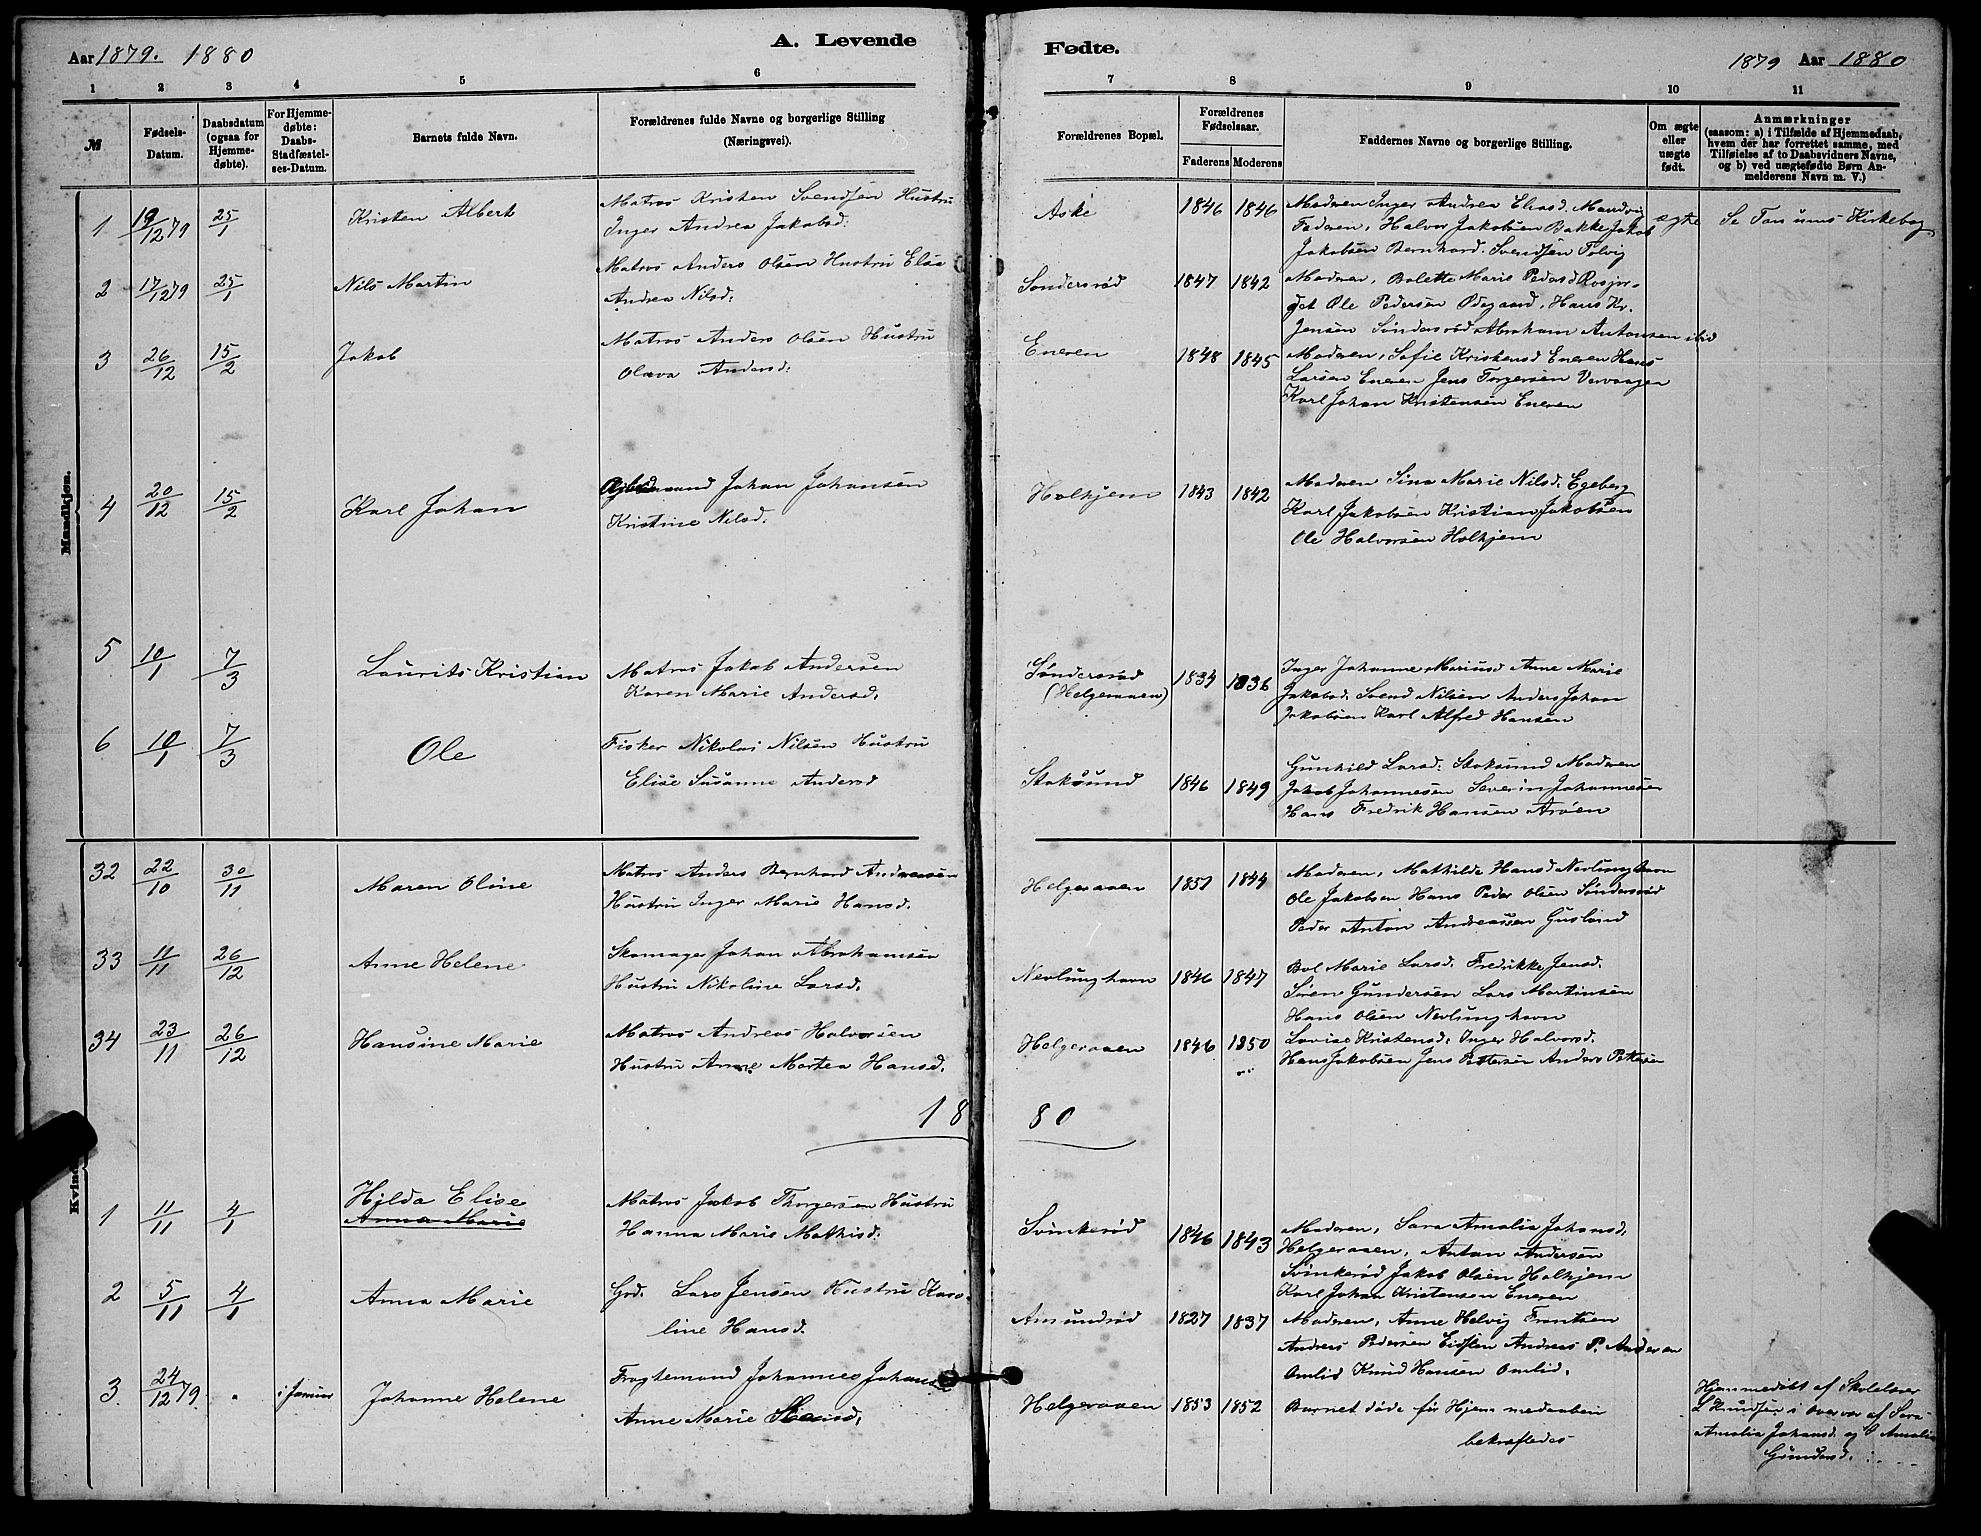 Aar 1879. 1880
A. Levende
Fødte.
1879 Aar 1880
1 2 3 4 5 6 7 8 9 10 11
M
Fødsels-
Datum.
Daabsdatum
(ogsaa for
Hjemme-
døbte).
For Hjemme-
døbte:
Daabs-
Stadfæstel-
ses-Datum.
Barnets fulde Navn.
Forældrenes fulde Navne og borgerlige Stilling
(Næringsvei).
Forældrenes Bopæl.
Forældrenes
Fødselsaar.
Faderens Moderens
Faddernes Navne og borgerlige Stilling.
Om ægte
eller
uægte
født.
Anmærkninger
(saasom: a) i Tilfælde af Hjemmedaab,
hvem der har forrettet samme, med
Tilføielse af to Daabsvidners Navne,
og b) ved uægtefødte Børn An-
melderens Navn m. V.)
Mandkjøn.
1 19/12 79 25/1 Kristen Albert
Matros Kristen Svendsen Hustru
Inger Andrea Jakobsd.
Aske 1846 1846
Moderen Inger Andrea Eliasd. Manvig
Faderen, Halvor Jakobsen Bakke Jakob
Jakobsen Bernhard Svendsen Tolvig
ægte
Se Tanums Kirkebog
2 17/12 79 25/1 Nils Martin
Matros Anders Olsen Hustru Elise
Andrea Nilsd.
Søndersrød 1847 1842
Moderen, Bolette Marie Pedersd
Ole Pedersen Ødegaard, Hans Kr.
Jensen Søndersrød Abraham Antonsen ibid
3 26/12 15/2 Jakob
Matros Anders Olsen Hustru
Olava Andersd.
Eneren 1848 1845
Moderen, Sofie Kristensd Eneren Hans
Larsen Eneren Jens Torgersen Vervaagen
Karl Johan Kristensen Eneren
4 20/12 15/2 Karl Johan
Johan Johansen
Kristine Nilsd.
Holkjem 1843 1842
Moderen Sina Marie Nilsd. Egeberg
Karl Jakobsen Kristian Jakobsen
Ole Halvorsen Holkjem
5 10/1 7/3 Laurits Kristian
Matros Jakob Andersen
Karen Marie Andersd.
Søndersrød
(Helgeraaen)
1834 1836
Inger Johanne Mariusd Anne Marie
Jakobsd. Svend Nilsen Anders Johan
Jakobsen Karl Alfred Hansen
6 10/1 7/3 Ole
Fisker Nikolai Nilsen Hustru
Elise Susanne Andersd
Stoksund 1846 1849
Gunhild Larsd. Stoksund Moderen
Jakob Johannesen Severin Johannesen
Hans Fredrik Hansen Arøen
32 22/10 30/11 Maren Oline
Matros Anders Bernhard Andreassen
Hustru Inger Marie Hansd.
Helgeraaen 1851 1844
Moderen, Mathilde Hansd Nevlunghavn
Ole Jakobsen Hans Peder Olsen Søndersrød
Peder Anton Andreassen Gusland
33 11/11 26/12 Anne Helene
Skomager Johan Abrahamsen
Hustru Nikoline Larsd.
Nevlunghavn 1846 1847
Bol Marie Larsd. Fredrikke Jensd.
Søren Gundersen Lars Martinsen
Hans Olsen Nevlunghavn
34 23/11 26/12 Hansine Marie
Matros Andreas Halvorsen
Hustru Anne Martea Hansd.
Helgeraaen 1846 1850
Lovise Kristensd. Inger Halvorsd.
Hans Jakobsen Jens Pettersen Anders Pettersen
1880
1 11/11 4/1 Hilda Elise
Anna Marie
Matros Jakob Thorgersen Hustru
Hanna Marie Mathisd.
Svinkerød 1846 1843
Moderen, Sara Amalia Johansd.
Helgeraaen, Anton Andersen
Svinkerød Jakob Olsen Holkjem
Karl Johan Kristensen Eneren
2 5/11 4/1 Anna Marie
Grd. Lars Jensen Hustru Karo-
line Hansd.
Amundrød 1827 1837
Moderen, Anne Helvig Frantsen
Andreas Pedersen Andreas P. Andersen
Omlid Knud Hansen Omlid.
3. 24/12 79. " i Januar Johanne Helene
Fragtemand Johannes
Anne Marie
Helgeraaen 1853 1852
Barnet døde før Hjemmedaaben
bekræftedes
Hjemmedøbt af Skolelærer
L Knudsen i Overvær af Sara
Amalia Johansd. og Amalia
Gundersd.